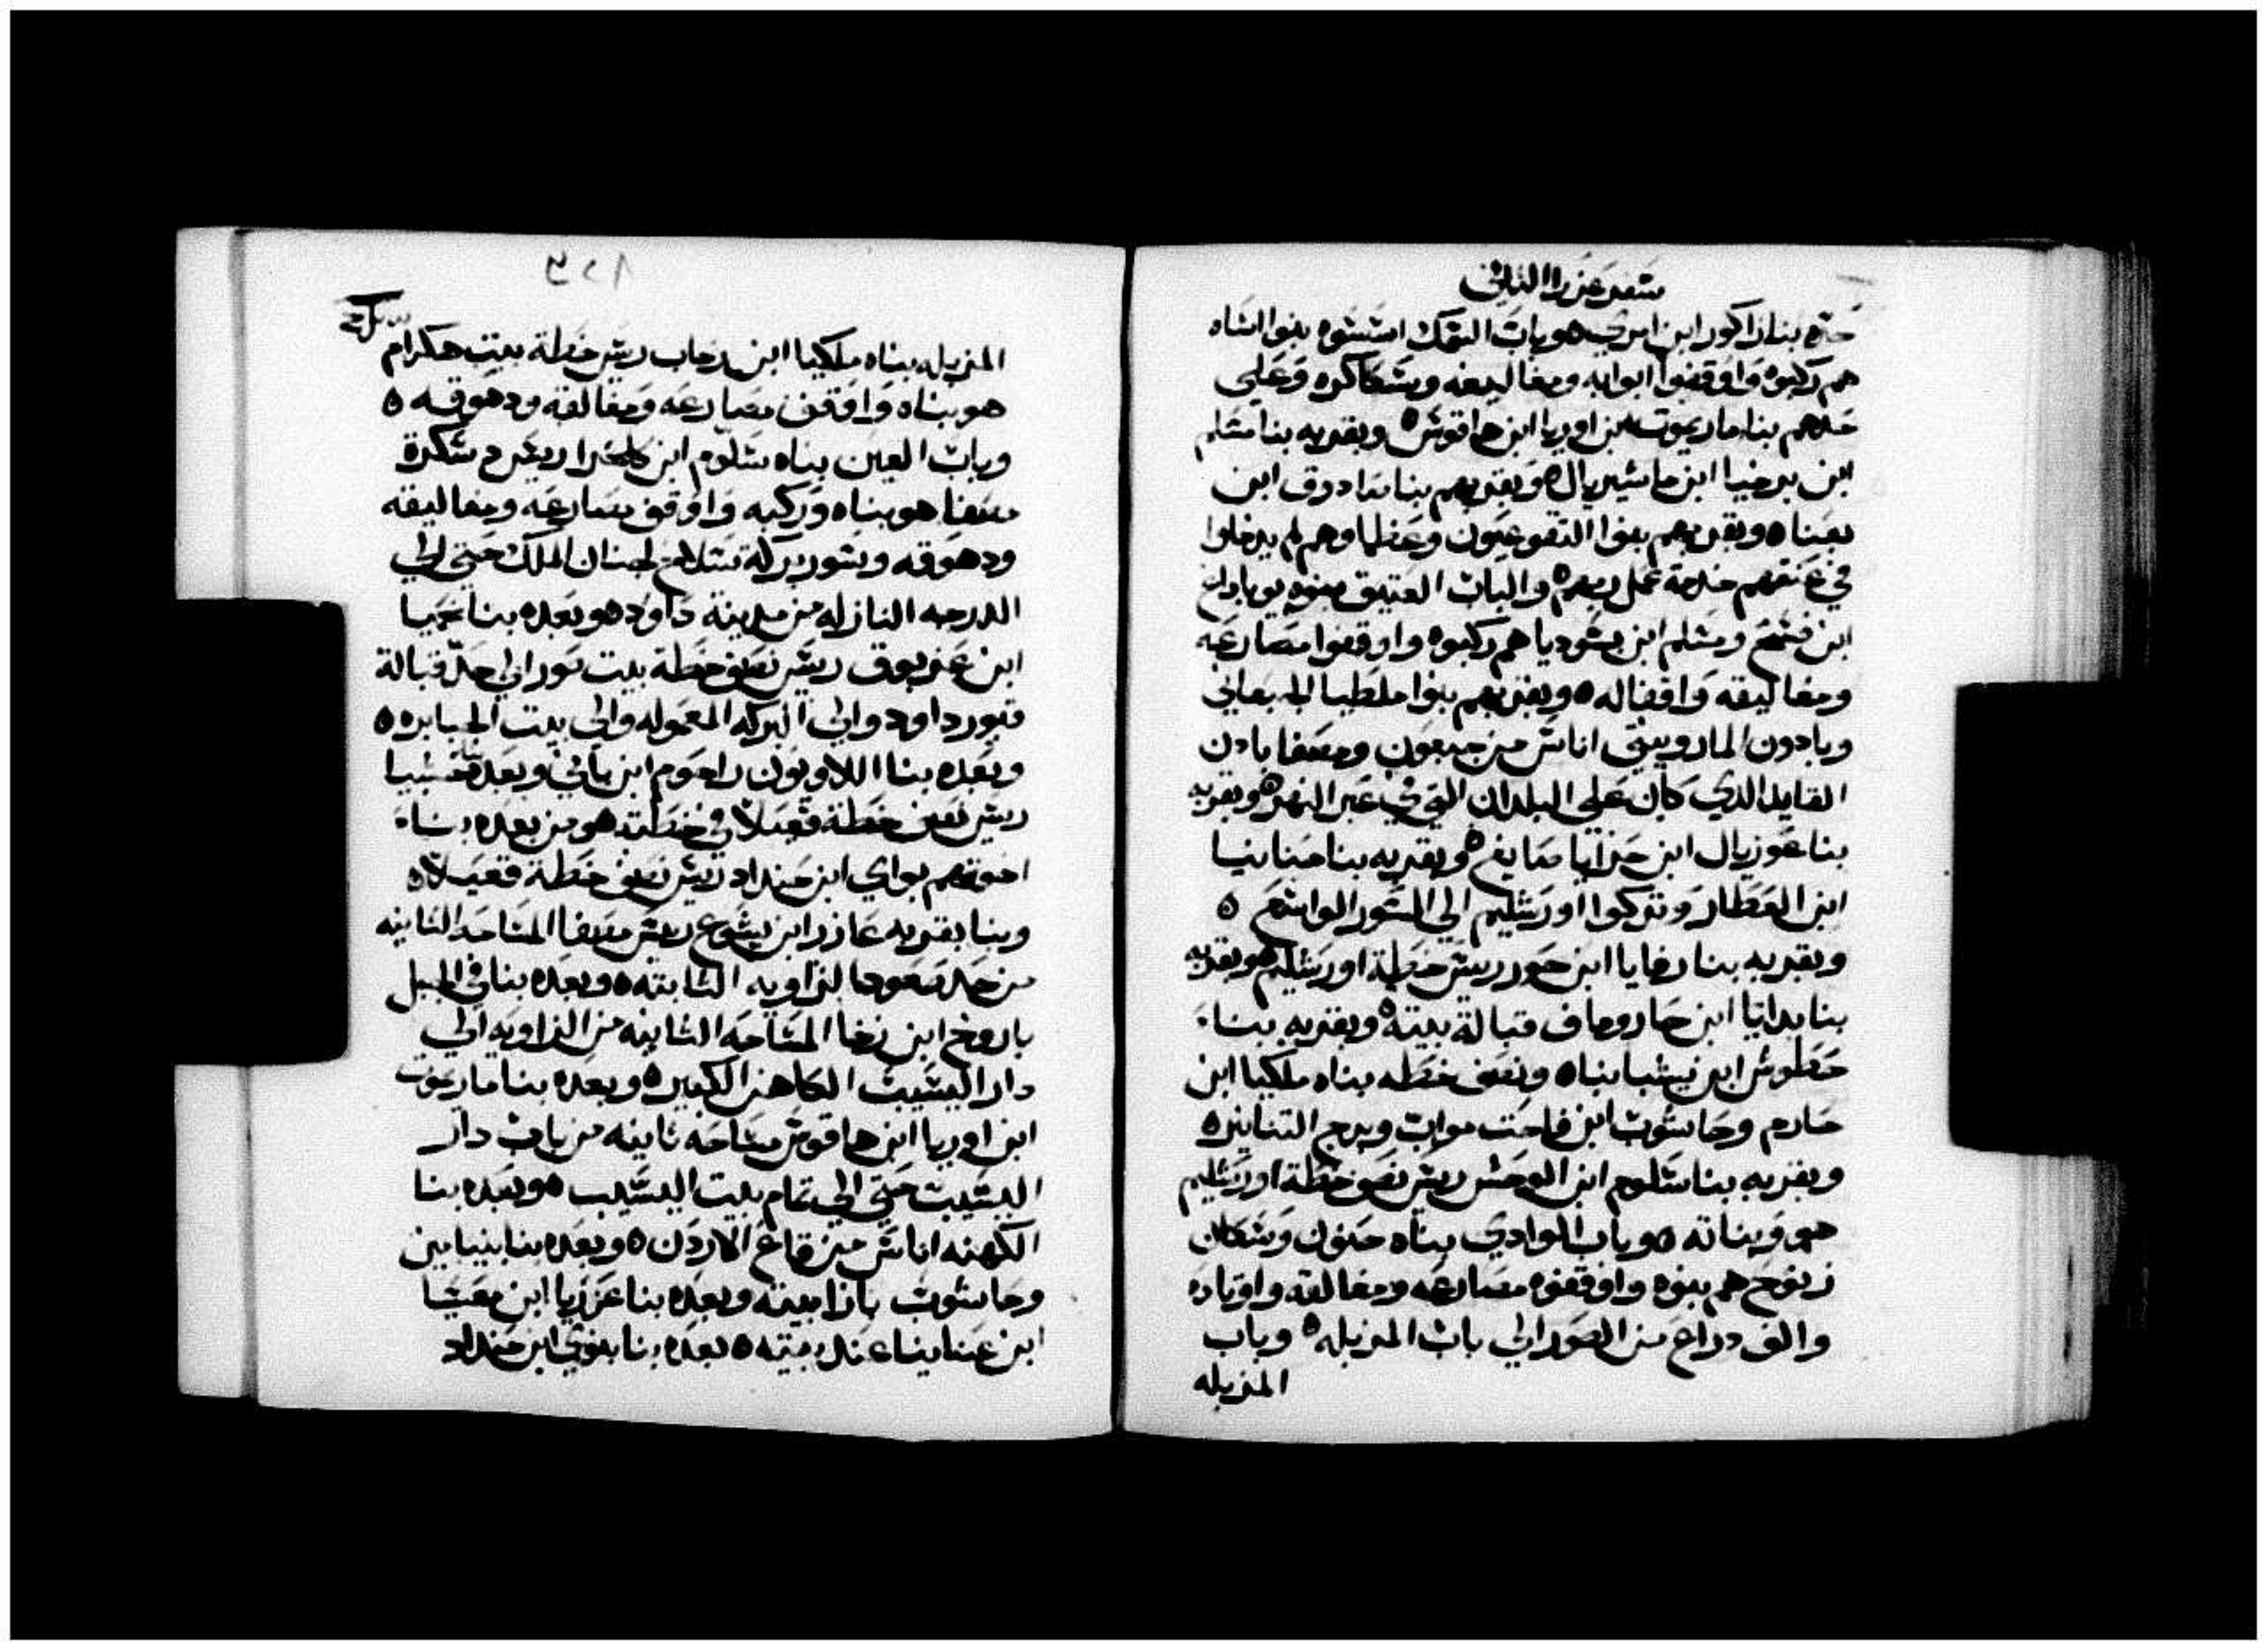 سفر عزرا الثاني
حده بنا زاكور ابن امري ه وباب السمك اسسوه بنوا اساه
هم ركبوه واوقفوا ابوابه ومغاليقه وسكاكره وعلي
حدهم بنا ماريموت بن اوريا ابن هاقوش ه وبقربه بنا مشلم
ابن برخيا ابن ماشيزيال ه وبقربهم بنا صادوق ابن
بعناه وبقربهم بنوا التقوعيون وعظماوهم لم يدخلوا
في عنقهم خدمة عمل ربهم ه والباب العتيق بنوه يوياداع
ابن فسح ومشلم ابن بسوديا هم ركبوه واوقفوا مصارعه
ومغاليقه واقفاله ه وبقربهم بنوا ملطيا الجبعاني
ويادون الماروبيتي اناس من جبعون ومصفا بادن
القايد الذي كان علي البلدان التي في عبر النهر ه وبقربه
بنا عوزيال ابن حرايا صايغ ه وبقربه بنا حنانيا
ابن العطار وتركوا اورشليم الي السور الواسع ه
وبقربه بنا رفايا ابن حور ريس خطة اورشليم ه وبقربه
بنا يدايا ابن حاروماف قبالة بيته ه وبقربه بناء
حطوش ابن نيشبا بناه ونصف خطه بناه ملكيا ابن
حارم وحاشوب ابن فاحت مواب وبرج التنانير ه
وبقربه بنا سلوم ابن الوحش ريس نصف خطة اورشليم
هو وبناته ه وباب الوادي بناه حنون وسكان
زنوح هم بنوه واوقفوه مصارعه ومغالقه واوتاده
والف دراع من الصور الي باب المزبله ه وباب
المزبله
المزبله بناه ملكيا ابن رحاب ريس خطة بيت هكرام
هو بناه واوقف مصارعه ومغالقه ودهوقه ه
وباب العين بناه سلوم ابن ريس سكرة
مصفا هو بناه وركبه واوقف مصارعه ومغاليقه
ودهوقه وسور بركة سلاح لجنان الملك حتي الي
الدرجه النازله من مدينة داود ه وبعده بنا نحميا
ابن عزبوق ريس نصف خطة بيت صور الي حد قبالة
قبور داود والي البركه المعموله والي بيت الجبابره ه
وبعده بنا اللاويون راحوم ابن باني وبعده بنا حسبيا
ريس نصف خطة قعيلا في خطته ه ومن بعده بناء
اخوتهم بواي ابن حينداد ريس نصف خطة قعيلا ه
وبنا بقربه عازر ابن يشوع ريس مصفا المساحه الثانيه
من حد صعودها لزاويه الثابته ه وبعده بنا في الجبل
باروخ ابن زخا المساحه الثانيه من الزاويه الي
دار اليشيب الكاهن الكبير ه وبعده بنا ماريموت
ابن اوريا ابن هاقوش مساحه ثانيه من باب دار
اليشيب حتي الي تمام بيت اليشيب ه وبعده بنا
الكهنه اناس من قاع الاردن ه وبعده بنا بنيامين
وحاشوب بازا بيته وبعده بنا عزريا ابن معسيا
ابن عنانيا عند بيته ه بعده بنا بنوي ابن حينداد